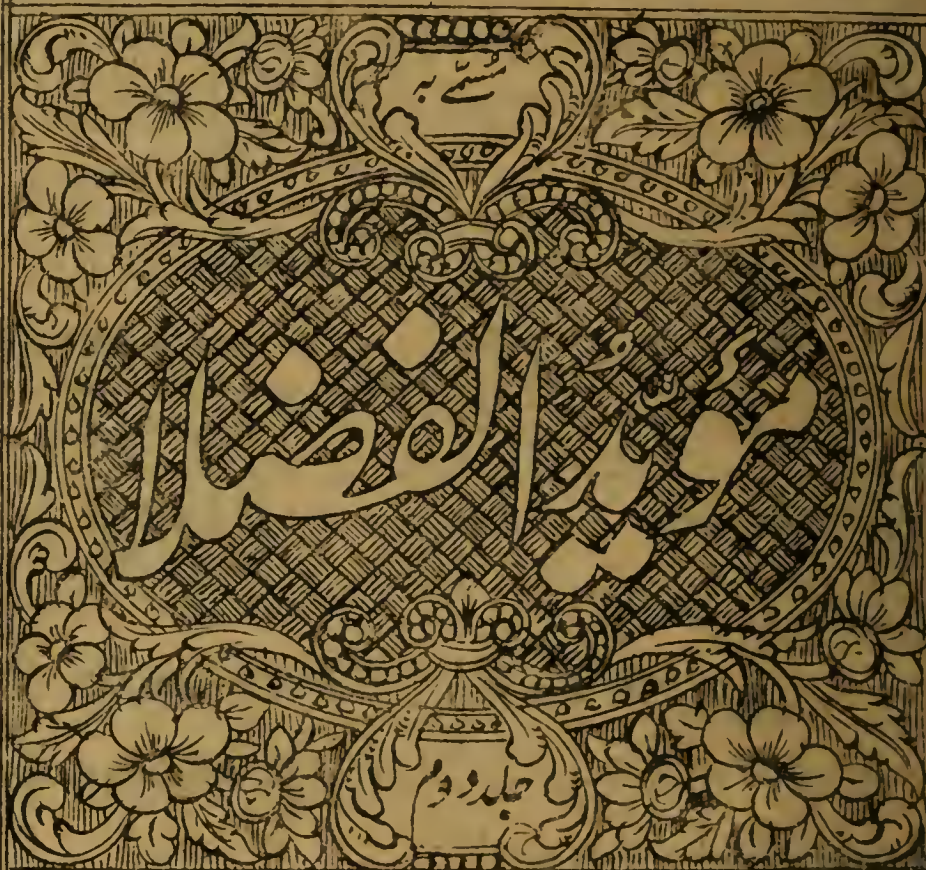 مسمّٰے بہ
مُؤیِّدُ الفُضلا
جلد دوم